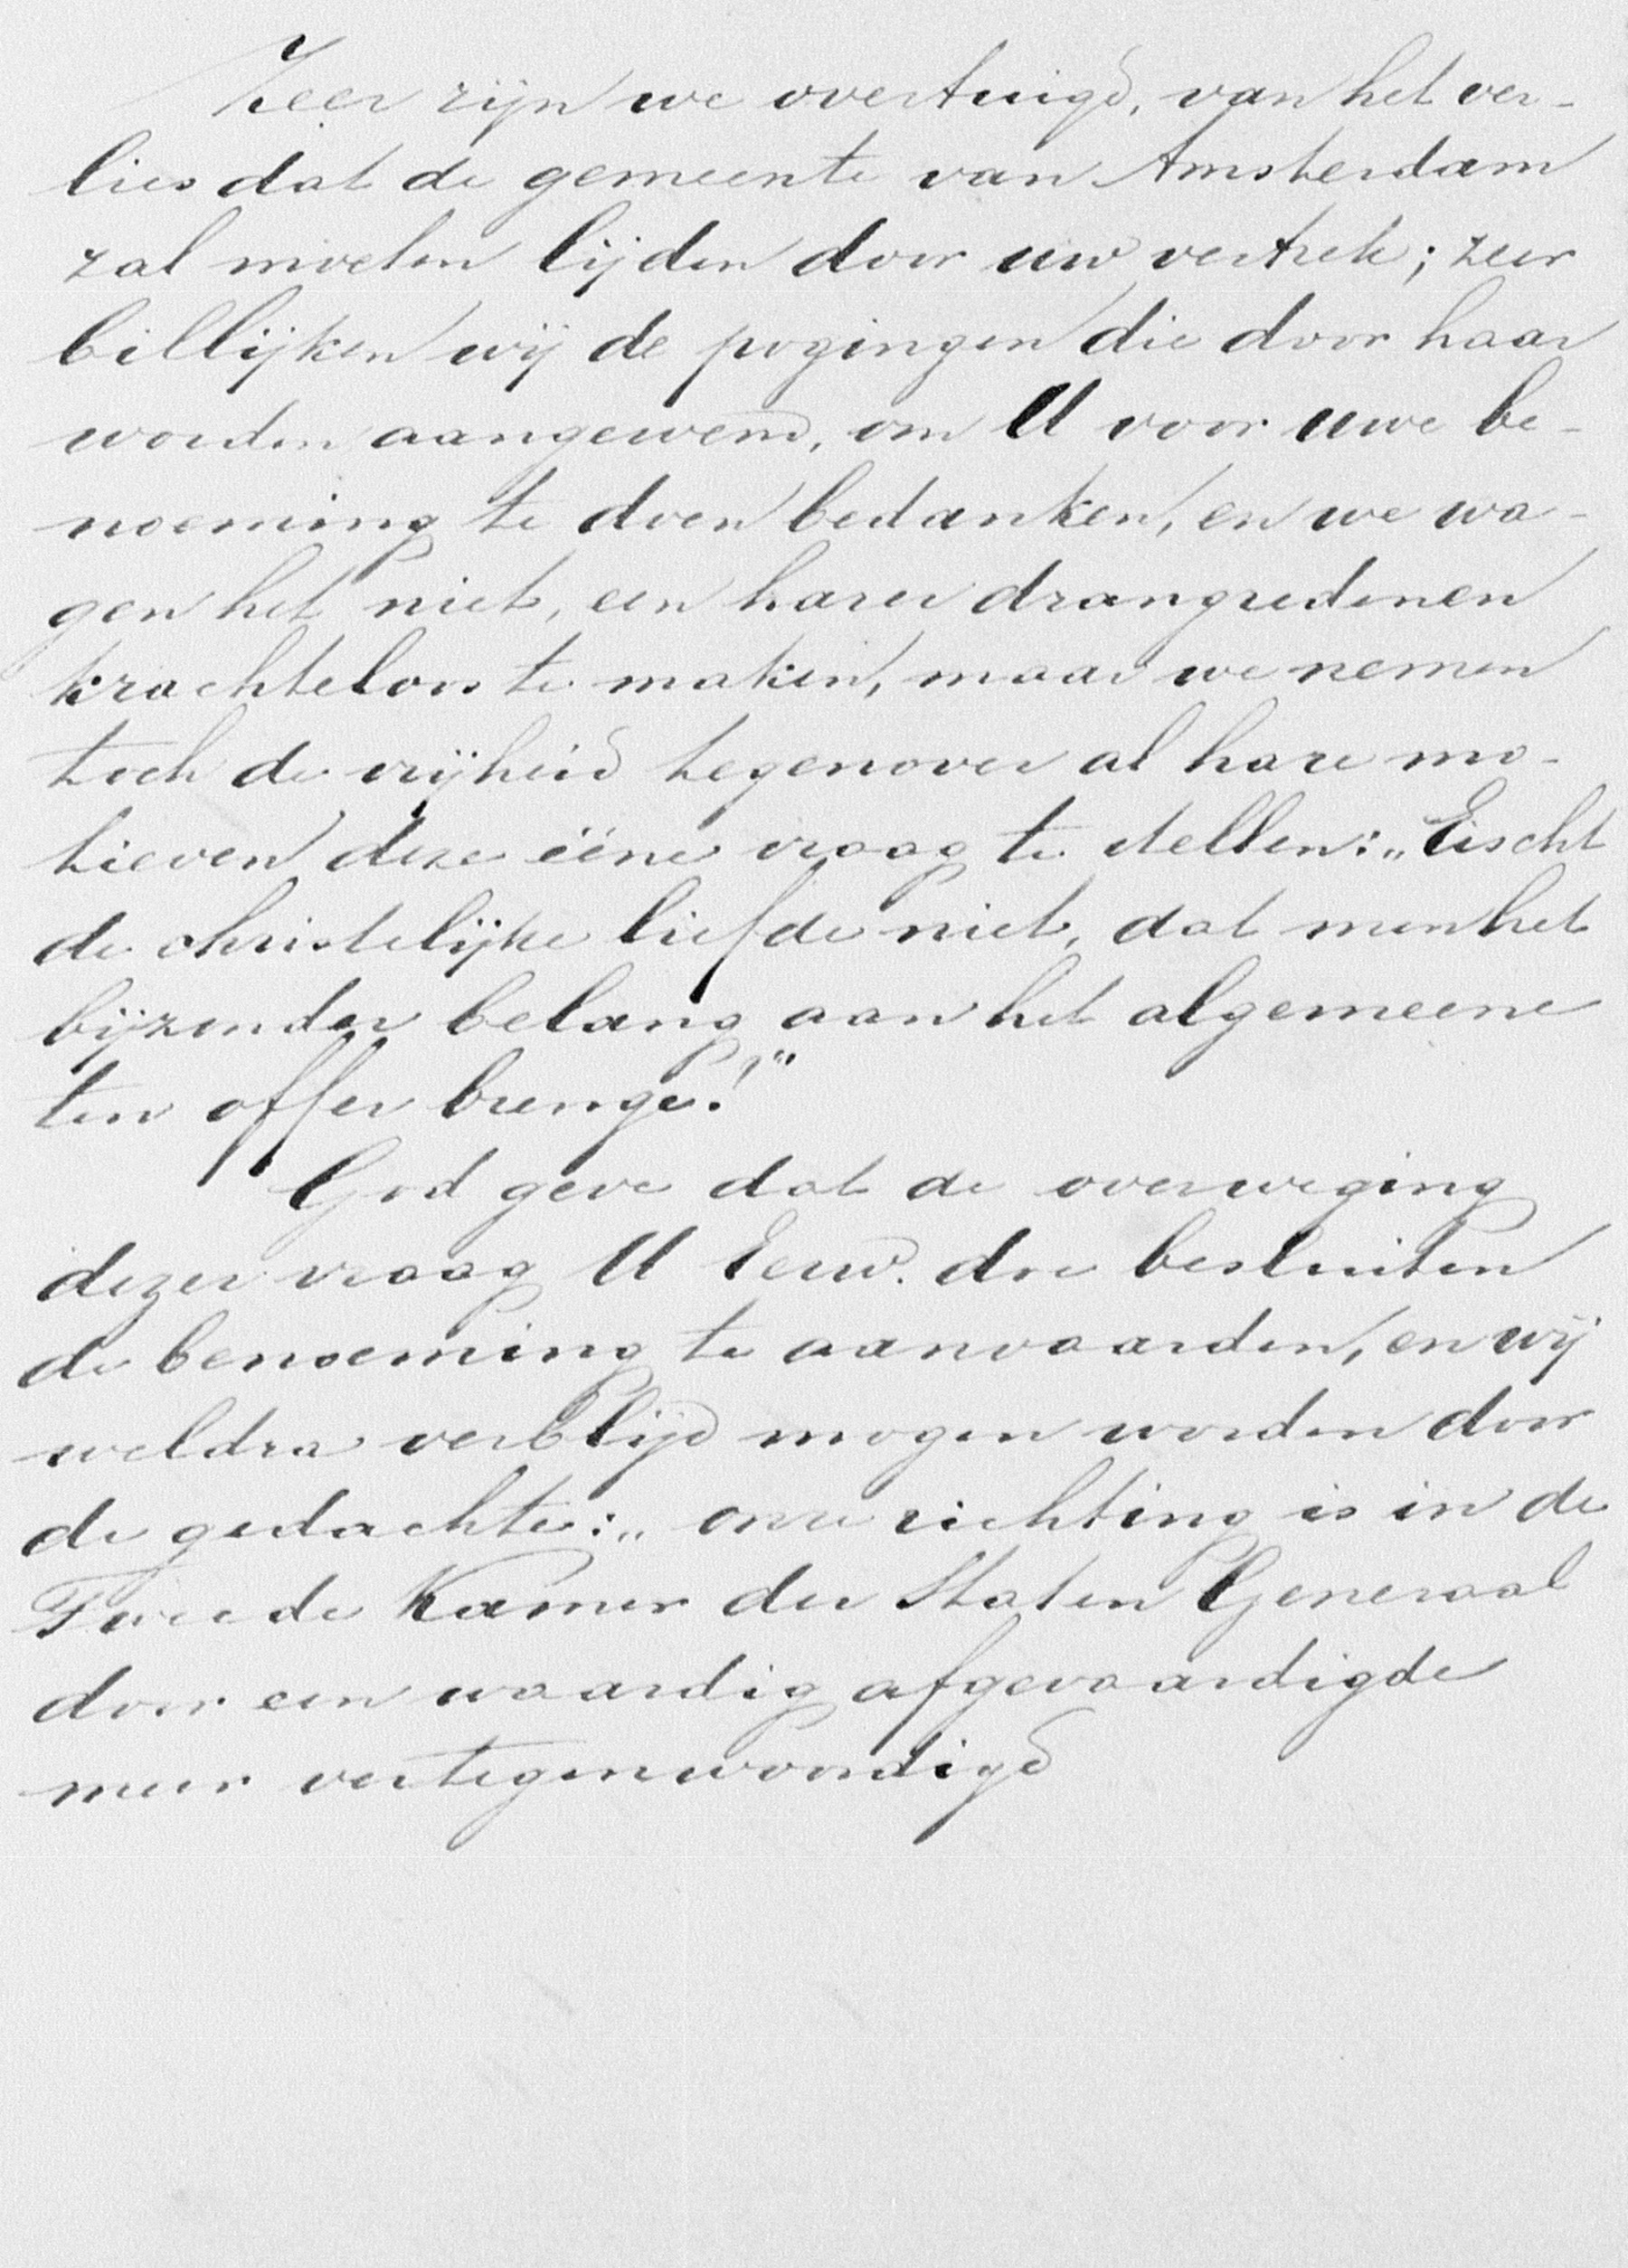 Zeer zijn we overtuigd, van het ver-
lies dat de gemeente van Amsterdam
zal moeten lijden door uw vertrek; zeer
billijken wij de pogingen die door haar
worden aangewend, om U voor uwe be-
noeming te doen bedanken, en we wa-
gen het niet, een harer drangredenen
krachteloos te maken, maar we nemen
toch de vrijheid tegenover al hare mo-
tieven deze ééne vraag te stellen: „Eischt
de christelijke liefde niet, dat men het
bijzonder belang aan het algemeene
ten offer brenge!"
God geve dat de overweging
dezer vraag U Eerw. doe besluiten
de benoeming te aanvaarden, en wij
weldra verblijd mogen worden door
de gedachte: „onze richting is in de
Tweede Kamer der Staten Generaal
door een waardig afgevaardigde
meer vertegenwoordigd